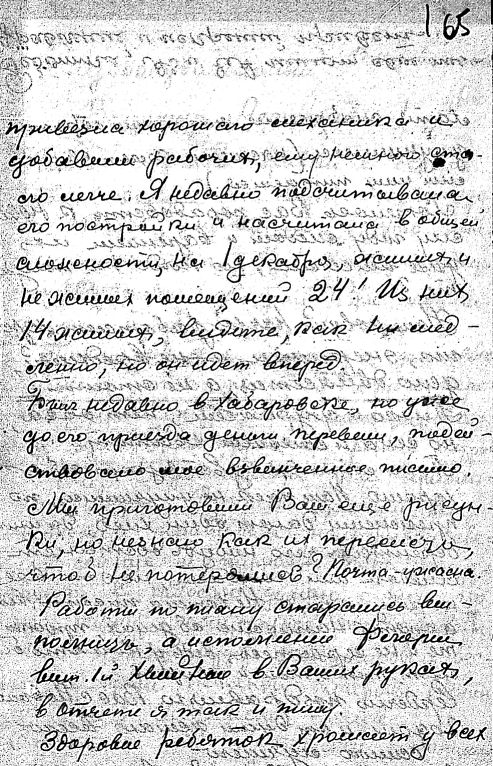 165
привезла хорошаго механика и
добавили рабочих, ему немного ста-
ло легче. Я недавно подсчитывала
его постройки и насчитала в общей
сложности, на 1 декабря, жилых и
не жилых помещений 24! Из них
14 жилых, видите, как ни мед-
ленно, но он идет вперед.
Был недавно в Хабаровске, но уже
до его приезда деньги перевели, подей-
ствовало мое взвинченное письмо.
Мы приготовили Вам еще рисун-
ки, но незнаю как их переслать,
чтоб не потерялись? Почта ужасна.
Работы по плану старались вы-
полнить, а исполнении
вып. 1й в Ваших руках,
в отчете я так и пишу.
Здоровие ребяток хромает у всех